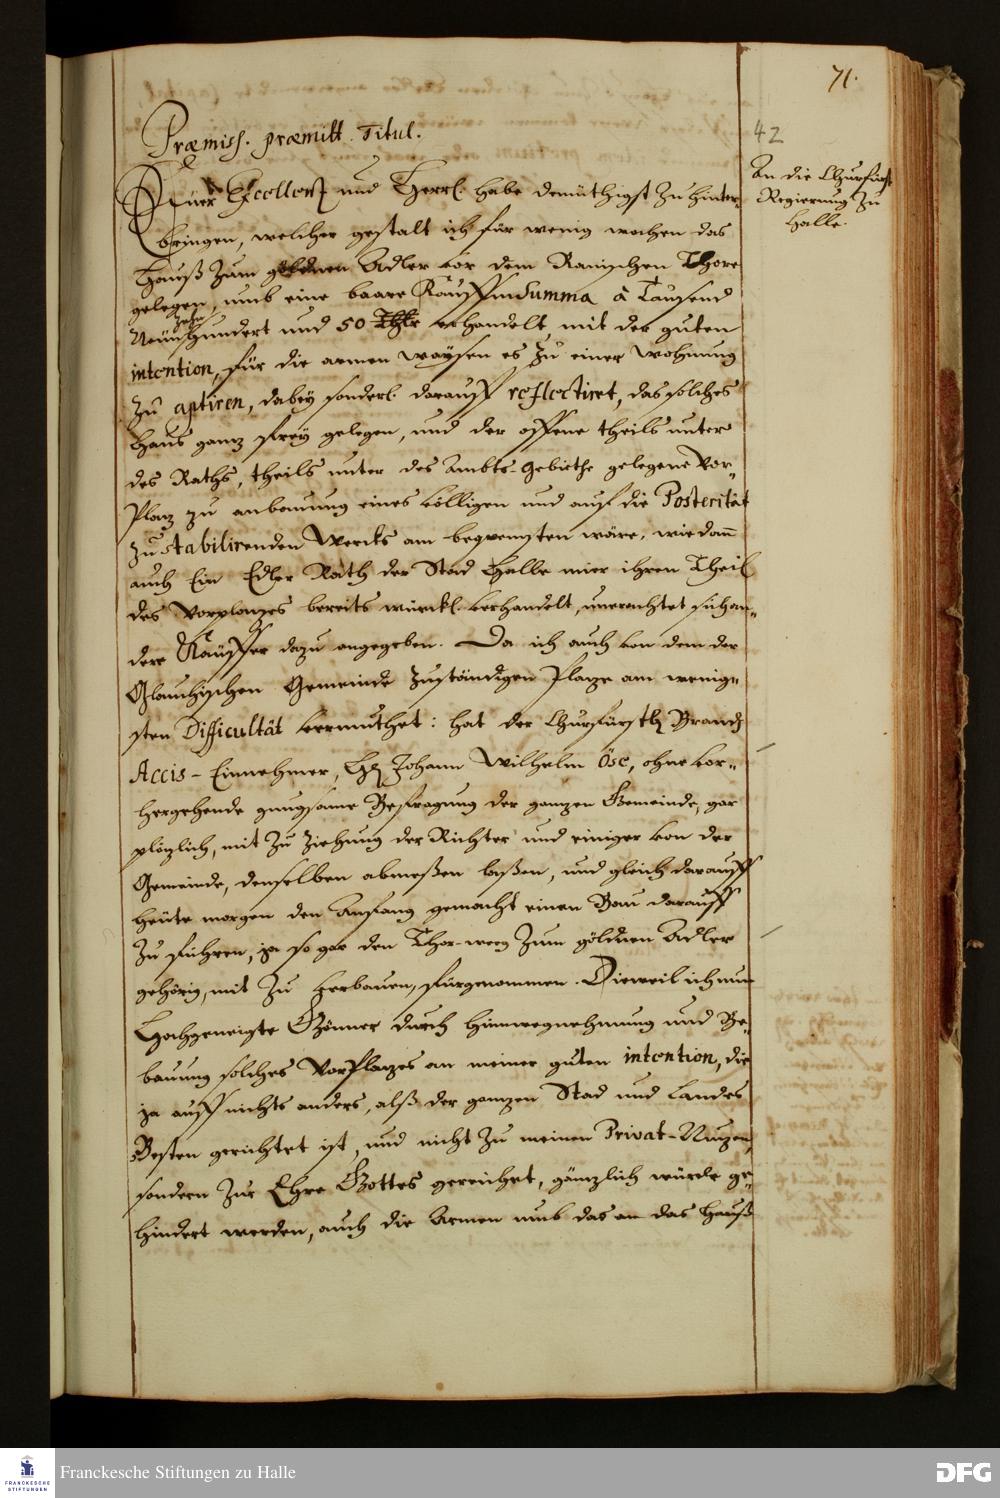 71.
42
An die Churfürstl
Regierung zu
Halle.
Præmiss. præmitt. Titul.
Euer Excellentz und Herrl. habe demüthigst zu hinter-
bringen, welcher gestalt ich für wenig wochen das
Hauß zum göldnen Adler vor dem Ranischen Thore
gelegen, umb eine baare Kauffsumma à Tausend
Neun hundert und 50 Thlr erhandelt, mit der guten
intention, für die armen waysen es zu einer Wohnung
zu aptiren, dabey sonderl. darauff reflectiret, das solches
Haus gantz frey gelegen, und der offene theils unter
des Raths, theils unter des Ambts-gebiethe gelegene Vor-
Platz zu anbauung eines völligen und auf die Posterität
zu stabilirenden Wercks am beqvemsten wäre, wie dann
auch Ein Edler Rath der Stad Halle mier ihren Theil
des Vorplatzes bereits würckl. verhandelt, unerachtet sich an-
dere Käuffer dazu angegeben. Da ich auch von dem der
Glauchischen Gemeinde zuständigen Platze am wenig-
sten Difficultät vermuthet: hat der Churfürstl Brand
Accis-Einnehmer, H Johann Wilhelm Öse, ohne vor-
hergehende gnugsame Befragung der gantzen Gemeinde, gar
plötzlich, mit Zuziehung der Richter und einiger von der
Gemeinde, denselben abmeßen laßen, und gleich darauff
heüte morgen den Anfang gemacht einen Bau darauff
zu führen, ja so gar den Thor-weg zum göldnen Adler
gehörig, mit zu verbauen, fürgenommen. Dieweil ich nun
Hochgeneigte Gönner durch hinwegnehmung und Be-
bauung solches Vorplatzes an meiner guten intention, die
ja auff nichts anders, alß der gantzen Stad und Landes
Besten gerichtet ist, und nicht zu meinen Privat-Nutzen,
sondern zur Ehre Gottes gereichet, gäntzlich würde ge-
hindert werden, auch die Armen umb das an das Hauß
FRANCKESCHE
STIFTUNGEN
Franckesche Stiftungen zu Halle
DFG